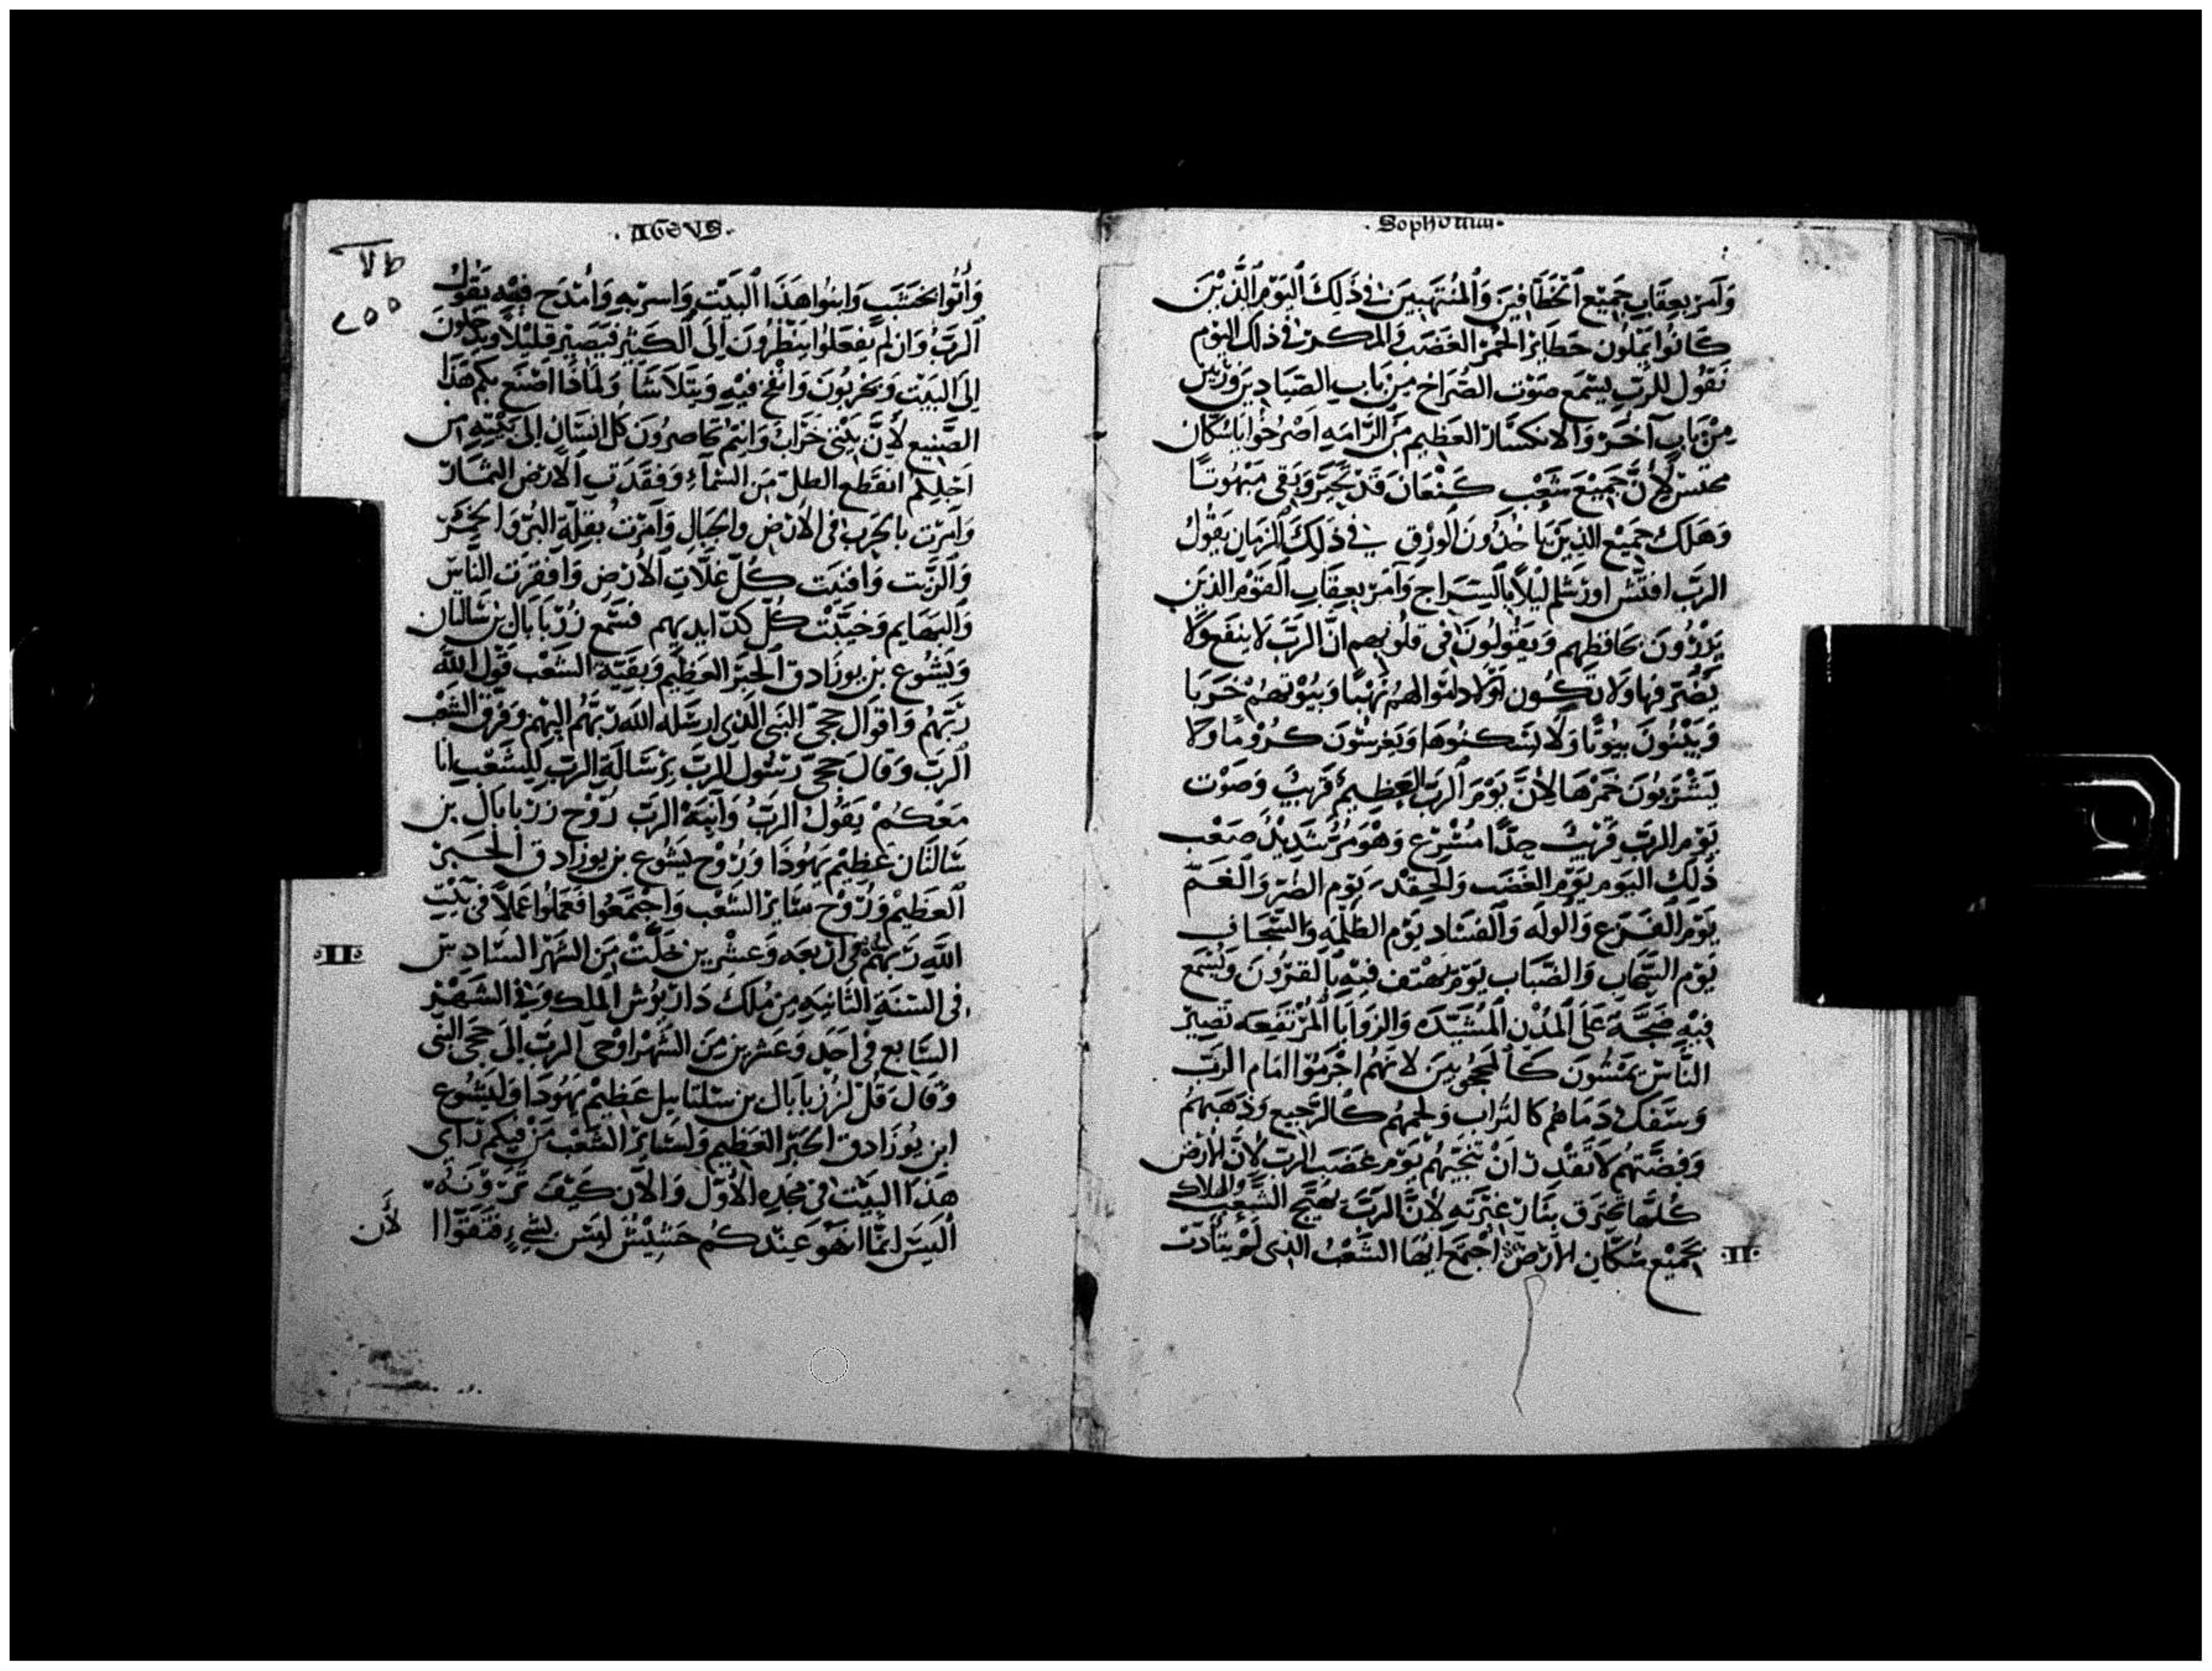 Sophonias
وَآمر بعِقَابِ جَمِيْع اَلخَطَّافِينَ وَالمُنتَهِبينَ في ذَلِكَ اليَوْمِ الَّذِيْنَ
كَانُوا يَملُون حَظَايرَ الخمْر الغَضَب والمكر في ذلك اليوم
يَقُول للرَبّ يسْمَع صَوْت الصُرَاخ مِن بَاب الصَّيَادِين
مِنْ بَابٍ آخَرْ وَالانكسَار العَظِيم مِن الرَامَهِ اصْرُخُوا يا سُكَّان
لأَنَّ جَمِيْعَ شَعْب كَنْعَانَ قَدْ تَحَيَّرَ وَبَقى مَبْهُوتًا
وَهَلكَ جَمِيْع الذِينَ يَاخذُونَ الوَرِق في ذَلِكَ الزمَانِ يَقُولُ
الرَبّ افتّش اورَشلم لَيْلاً بِالسِّرَاج وَآمرْ بعِقَابِ القَوْم الذينَ
يَزْدَرُونَ بحَافظهم وَيَقولُونَ في قلُوبهم انَّ الرَبّ لاَ ينفَع وَلاَ
يَضُرّ ولاَ تَكُون اموَالهُمْ نَهْبًا وَبيُوتهُمْ خَرَبا
وَيَبْنُونَ بيُوتًا وَلاَ يَسْكنُوهَا وَيَغرسُونَ كرُومًا وَلا
يَشْرَبُونَ خَمْرَهَا لأَنَّ يَوْمَ الرَبّ العَظِيمْ قَرِيبٌ وَصَوْت
يَوْم الرَبّ قَرِيبٌ جِدًّا مسْرِع وَهْوَ مُرٌّ شَدِيدٌ صَعْب
ذَلكَ اليَوم يَوْم الغَضَب وَالحِقد يَوْم الضُرّ وَالغَمّ
يَوْم الفَزَع وَالولَه وَالفَسَاد يَوْم الظلْمَه وَالسَّجَاف
يَوْم السَّحَاب وَالضَّبَاب يَوْمٌ يهْتف فيْهِ بالقرُونَ وَيُسْمَع
فِيْهِ ضَجَّة عَلَى المُدُن المُشيّدَه وَالزوَايَا المُرْتفِعَه تَصِيرُ
النَّاسْ يَمْشُونَ كَالمحجُوبِينَ لانهُم اجْرَمُوا امام الرَبّ
وَسَفَكَ دَمَاهُم كالتُراب وَلحمهُم كالرَّجيع وَذَهَبهُم
وَفِضَّتهُم لاَ تَقْدر انْ تنجّيهُم يَوْم غَضَب الربّ لأنَّ الأَرْض
كُلّهَا تحْترق بنَارِ غيْرَتِهِ لأنَّ الرَبّ يهيّج الشَّعْب والهلاك
بجَمِيْع سُكَّانِ الأَرْض اجْتمَع ايّهَا الشَّعْبُ الذِى لَمْ يتأدّبْ
·II·
AGEVS
٢٥٥
وَأْتُوا بخَشَب وَابنُوا هَذَا البَيْت وَاسر بهِ وَامْتدَح فِيْهِ يَقُولُ
الرَبُّ وَان لم تفعَلُوا يَنْظُرُونَ اِلَى الكَثِيْرِ فيَصِيْر قَليْلاً وَيدخلونَ
اِلىَ البَيْت وَيخربُونَ وَانْفخ فيْهِ وَيتَلاَشَا وَلمَاذَا اصْنَع بكم هَذَا
الصَّنِيع لأنَّ بَيْتى خَرَابٌ وَانتم تحَاصِرُونَ كُل انسَانٍ الى بَيْتِهِ مِن
اجْلِكمْ انقَطع الطلّ مِن السَّمَآءِ وَفقَدَتِ الأرْض الثمَارَ
وَآمَرْت بالحَرْب في الأَرْض والجبَال وَآمَرْت بِقلةِ البُرّ وَالخَمْر
وَالزَيْت وَافنَيت كُلّ غَلَّاتِ الأَرْض وَافقَرت النَّاسَ
وَالبَهَايم وَخيَّبْت كُلّ كَدّ ايديهم فسَمع زُرْبَابَال بن شَالتان
وَيَشُوع بن يوزَادَق الحَبْر العَظِيم وَبقيّة الشَّعْب قَول الله
رَبّهُم وَاقوَال حجىّ النَبى الذى ارسَله الله رَبّهُم اليهم وَفَرق الشَعْب
الرَبّ وَقالَ حجىّ رَسُول الرَبّ برسَالَةِ الرَبّ لِلشَعْب انَا
مَعَكمْ يَقُولُ الرَبّ وَانبَهَ الرَبّ رُوْح زرْبابَال بن
شَالتَان عَظِيم يَهُوذَا وَرُوْح يَشُوع بن يوزَادق الحَبر
العَظِيْم وَرُوْح سَايرَ الشَّعْب وَاجْتمَعُوا فَعَمَلُوا عَمَلاً في بَيْتِ
اللهِ رَبّهُمْ في ارْبعَه وَعشْرِين خَلَتْ مِن الشَهْر السَّادِس
·II·
في السَّنَةِ الثَانيَهِ مِن مُلك دَاريُوش الملك وَفي الشَهْر
السَّابع في احَدٍ وَعشْرِين مِنَ الشَّهْر اوْحى الرَبّ الى حَجىّ النَبى
وَقالَ قُلْ لزُرْبَابَال بن سَلتَايِيل عَظيْم يَهُوذَا وَليَشُوع
ابن يُوزَادَق الحَبْر العَظِيم وَلسَايرَ الشَّعْب مَنْ فيكم رَاى
هَذَا البَيْت في مَجدِهِ الأَوّل وَالآن كَيْفَ تَرَوْنَهُ
اَلَيسَ انمَا هُوَ عِنْدكم حَسِيْسٌ ليْسَ بشيءٍ فَتَقَوَّوا
لأن